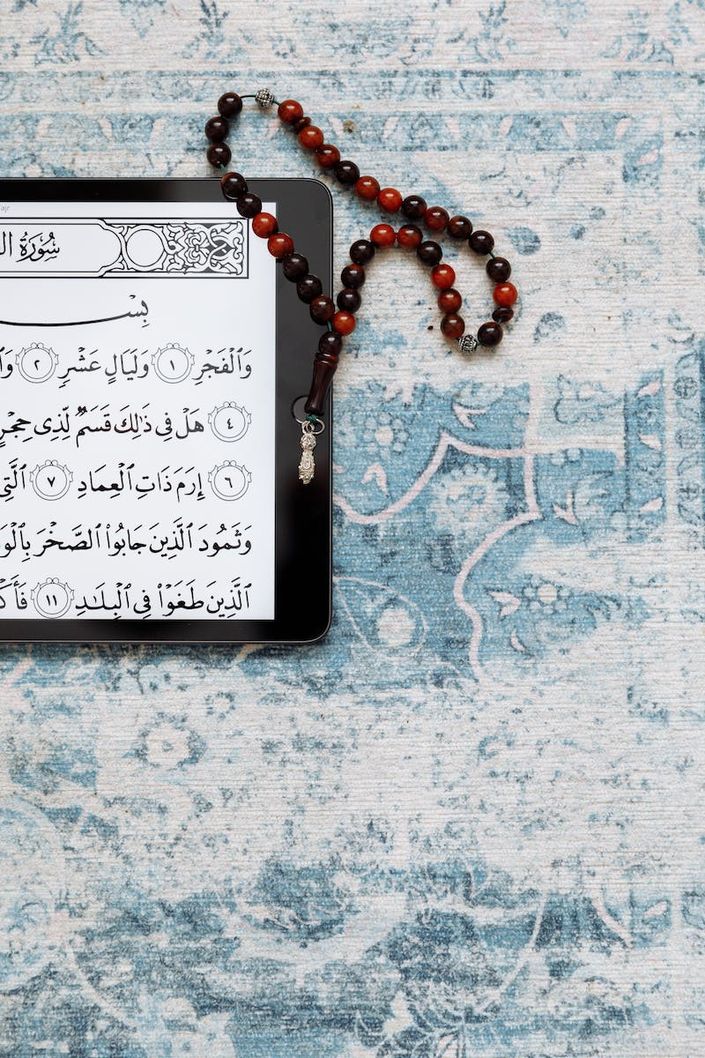 ajr
سُورَةُ ال
بِسْ
وَٱلْفَجْرِ ١ وَلَيَالٍ عَشْرٍ ٢ وَٱ
٤ هَلْ فِى ذَٰلِكَ قَسَمٌ لِّذِى حِجْرٍ
٦ إِرَمَ ذَاتِ ٱلْعِمَادِ ٧ ٱلَّتِى
وَثَمُودَ ٱلَّذِينَ جَابُوا۟ ٱلصَّخْرَ بِٱلْوَ
ٱلَّذِينَ طَغَوْا۟ فِى ٱلْبِلَـٰدِ ١١ فَأَكْ